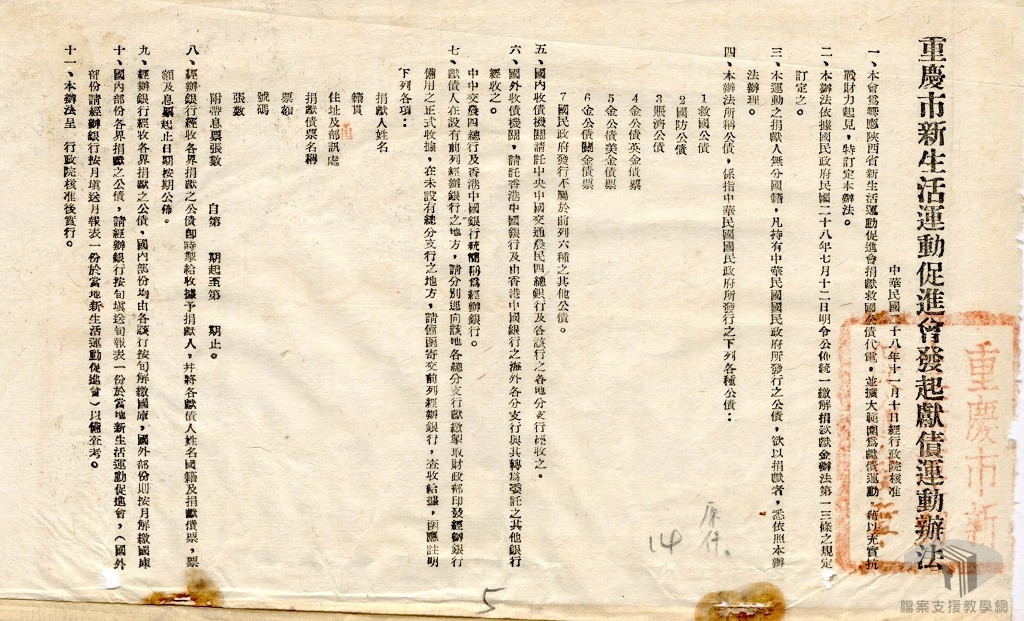 重慶市新生活運動促進會發起獻債運動辦法
中華民國二十八年十一月十日經行政院核准
一、本會為響應陝西省新生活運動促進會捐獻救國公債代電，並擴大範圍為獻債運動，藉以充實抗
戰財力起見，特訂定本辦法。
二、本辦法依據國民政府民國二十八年七月十二日明令公佈統一繳解捐款獻金辦法第十三條之規定
訂定之。
三、本運動之捐獻人無分國籍，凡持有中華民國國民政府所發行之公債，欲以捐獻者，悉依照本辦
法辦理。
四、本辦法所稱公債，係指中華民國國民政府所發行之下列各種公債：
1救國公債
2國防公債
3賑濟公債
4金公債英金債票
5金公債美金債票
6金公債關金債票
7國民政府發行不屬於前列六種之其他公債。
五、國內收債機關請託中央中國交通農民四總銀行及各該行之各地分支行經收之。
六、國外收債機關，請託香港中國銀行及由香港中國銀行之海外各分支行與其轉為委託之其他銀行
經收之。
中中交農四總行及香港中國銀行統簡稱為經辦銀行。
七、獻債人在設有前列經辦銀行之地方，請分別逕向該地各總分支行獻繳掣取財政部印發經辦銀行
備用之正式收據，在未設有總分支行之地方，請備函寄交前列經辦銀行，查收給據，函應註明
下列各項：
捐獻人姓名
籍貫
住址及通訊處
捐獻債票名稱
票額
號碼
張數
附帶息票張數 自第 期起至第 期止。
八、經辦銀行經收各界捐獻之公債卽時掣給收據予捐獻人，幷將各獻債人姓名國籍及捐獻債票，票
額及息票起止日期按期公佈。
九、經辦銀行經收各界捐獻之公債，國內部份均由各該行按旬解繳國庫，國外部份則按月解繳國庫
十、國內部份各界捐獻之公債，請經辦銀行按旬填送旬報表一份於當地新生活運動促進會，（國外
部份請經辦銀行按月填送月報表一份於當地新生活運動促進會）以備查考。
十一、本辦法呈 行政院核准後實行。
重慶市新
原件
14
5
檔案支援教學網